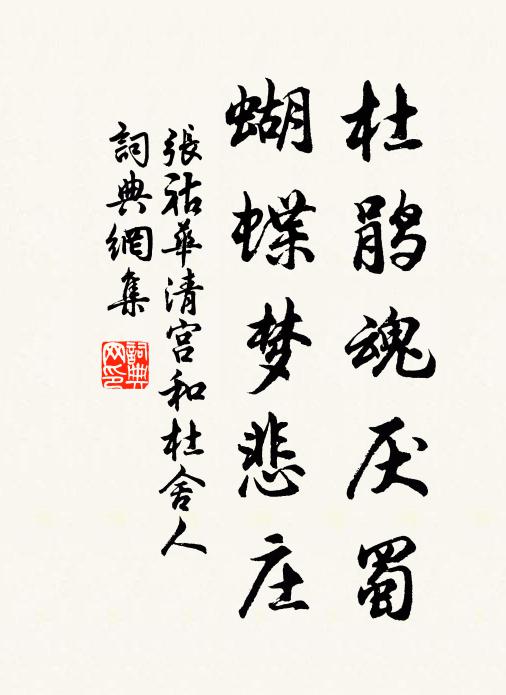 杜鹃魂厌蜀
蝴蝶梦悲庄
張祜華清宫和杜舍人
詞典網集
詞典网印